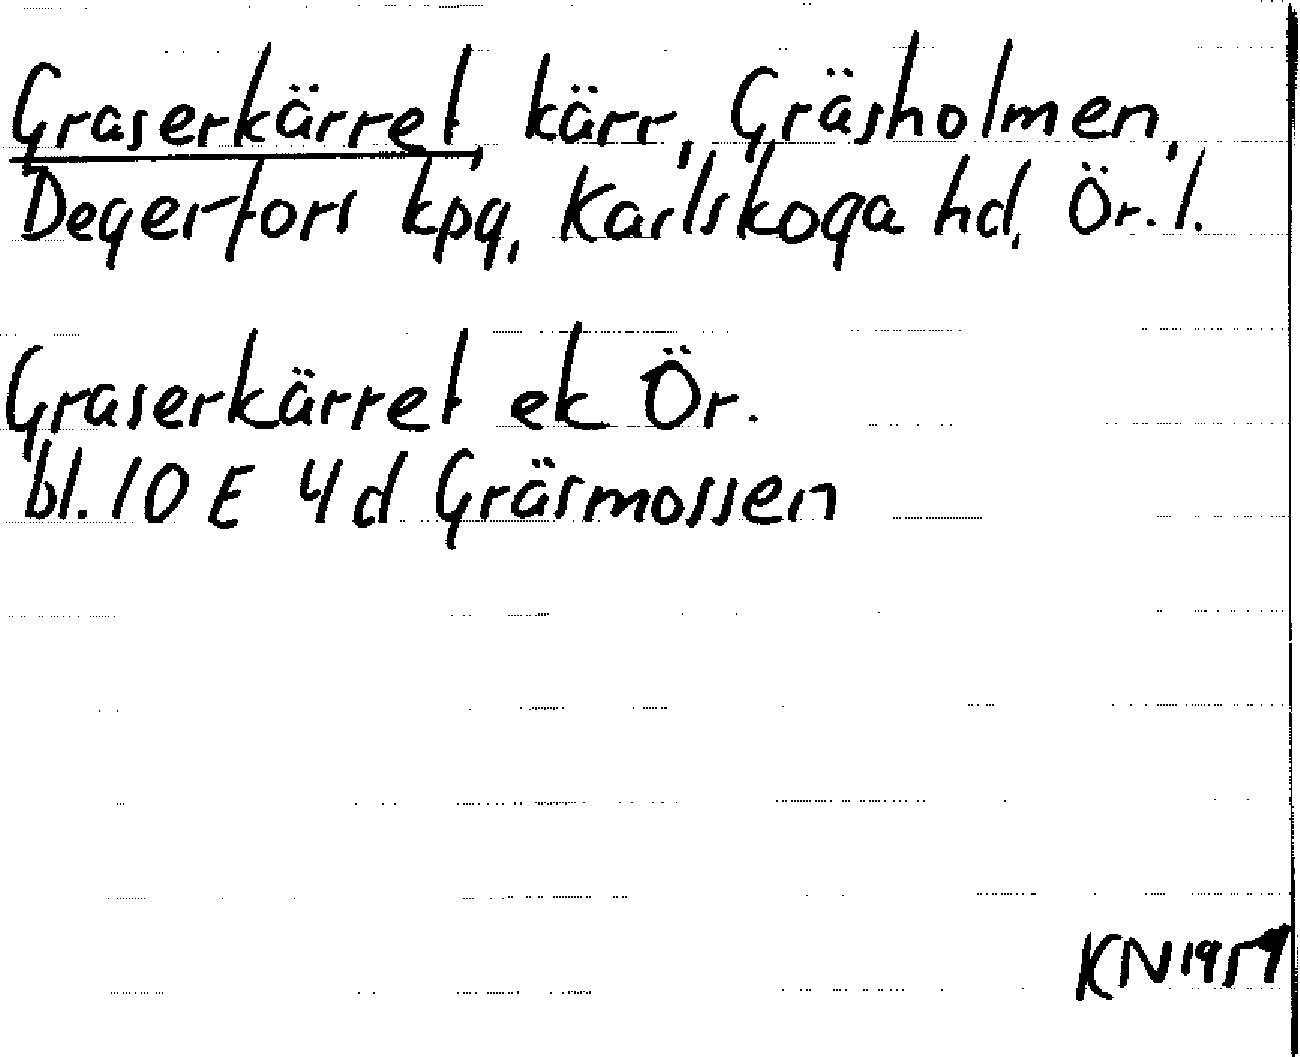 Graserkärret, kärr, Gräsholmen,
Degerfors kpg, Karlskoga hd, Ör. l.
Graserkärret ek Ör.
bl. 10 E 4 d Gräsmossen
KN